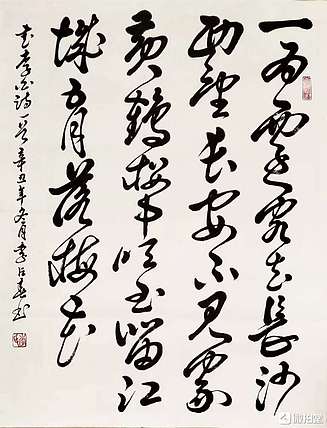 一为迁客去长沙
西望长安不见家
黄鹤楼中吹玉笛江
城五月落梅花
李白诗一首 辛丑年冬月
微拍堂